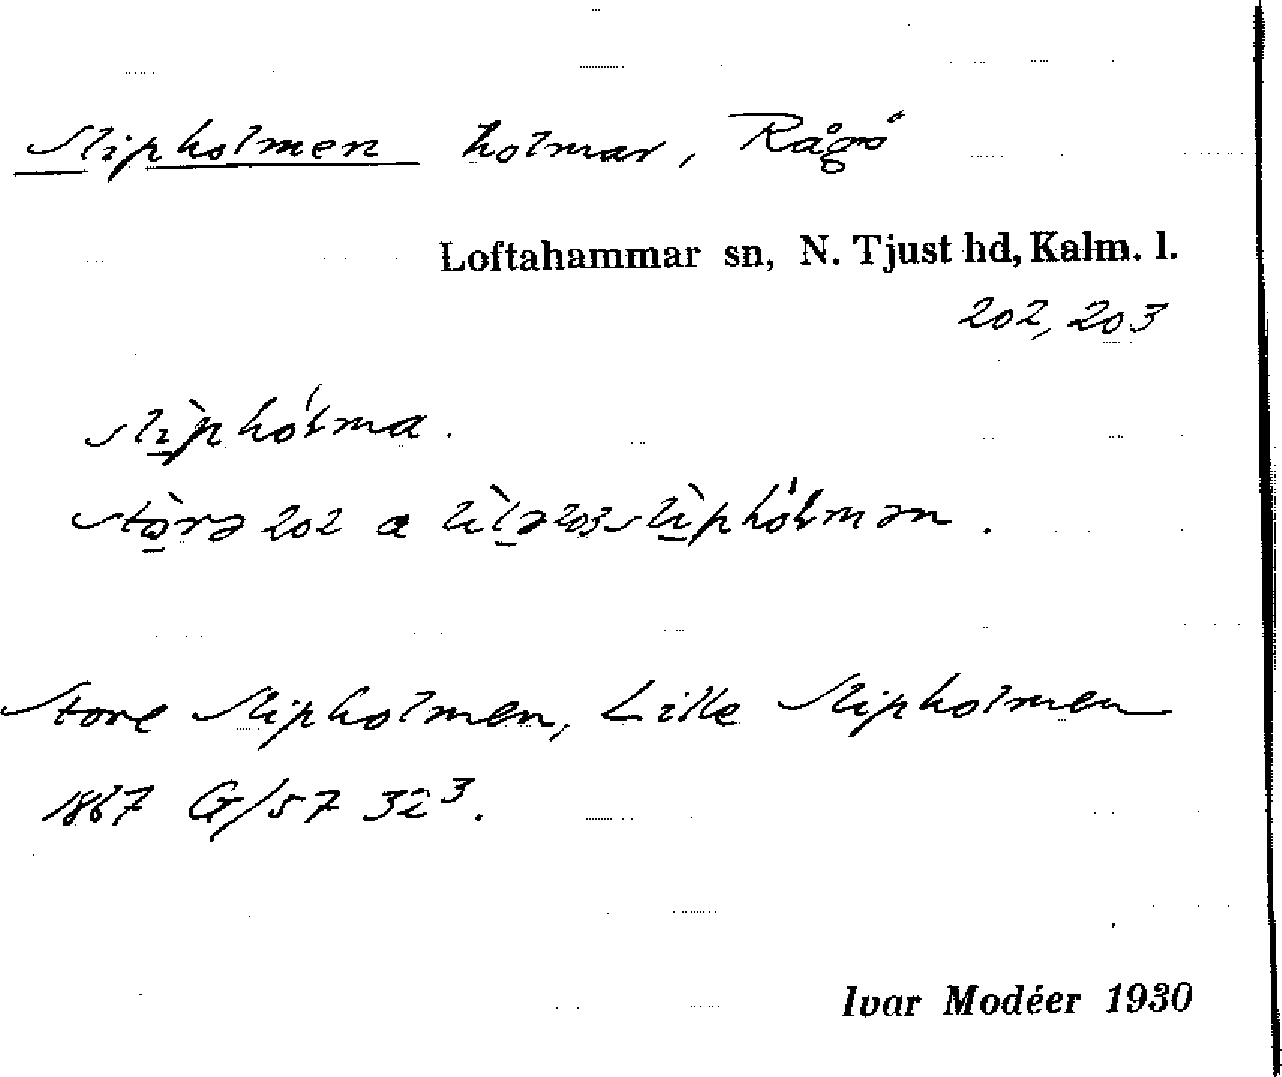 Slipholmen holmar, Rågö
Loftahammar sn, N. Tjust hd, Kalm. l.
202, 203
slì̱phóḷma.
stò̱rə 202 a lìḻə 203 slì̱phóḷmən.
Store Slipholmen, Lille Slipholmen
1867 G/57 32³.
Ivar Modéer 1930